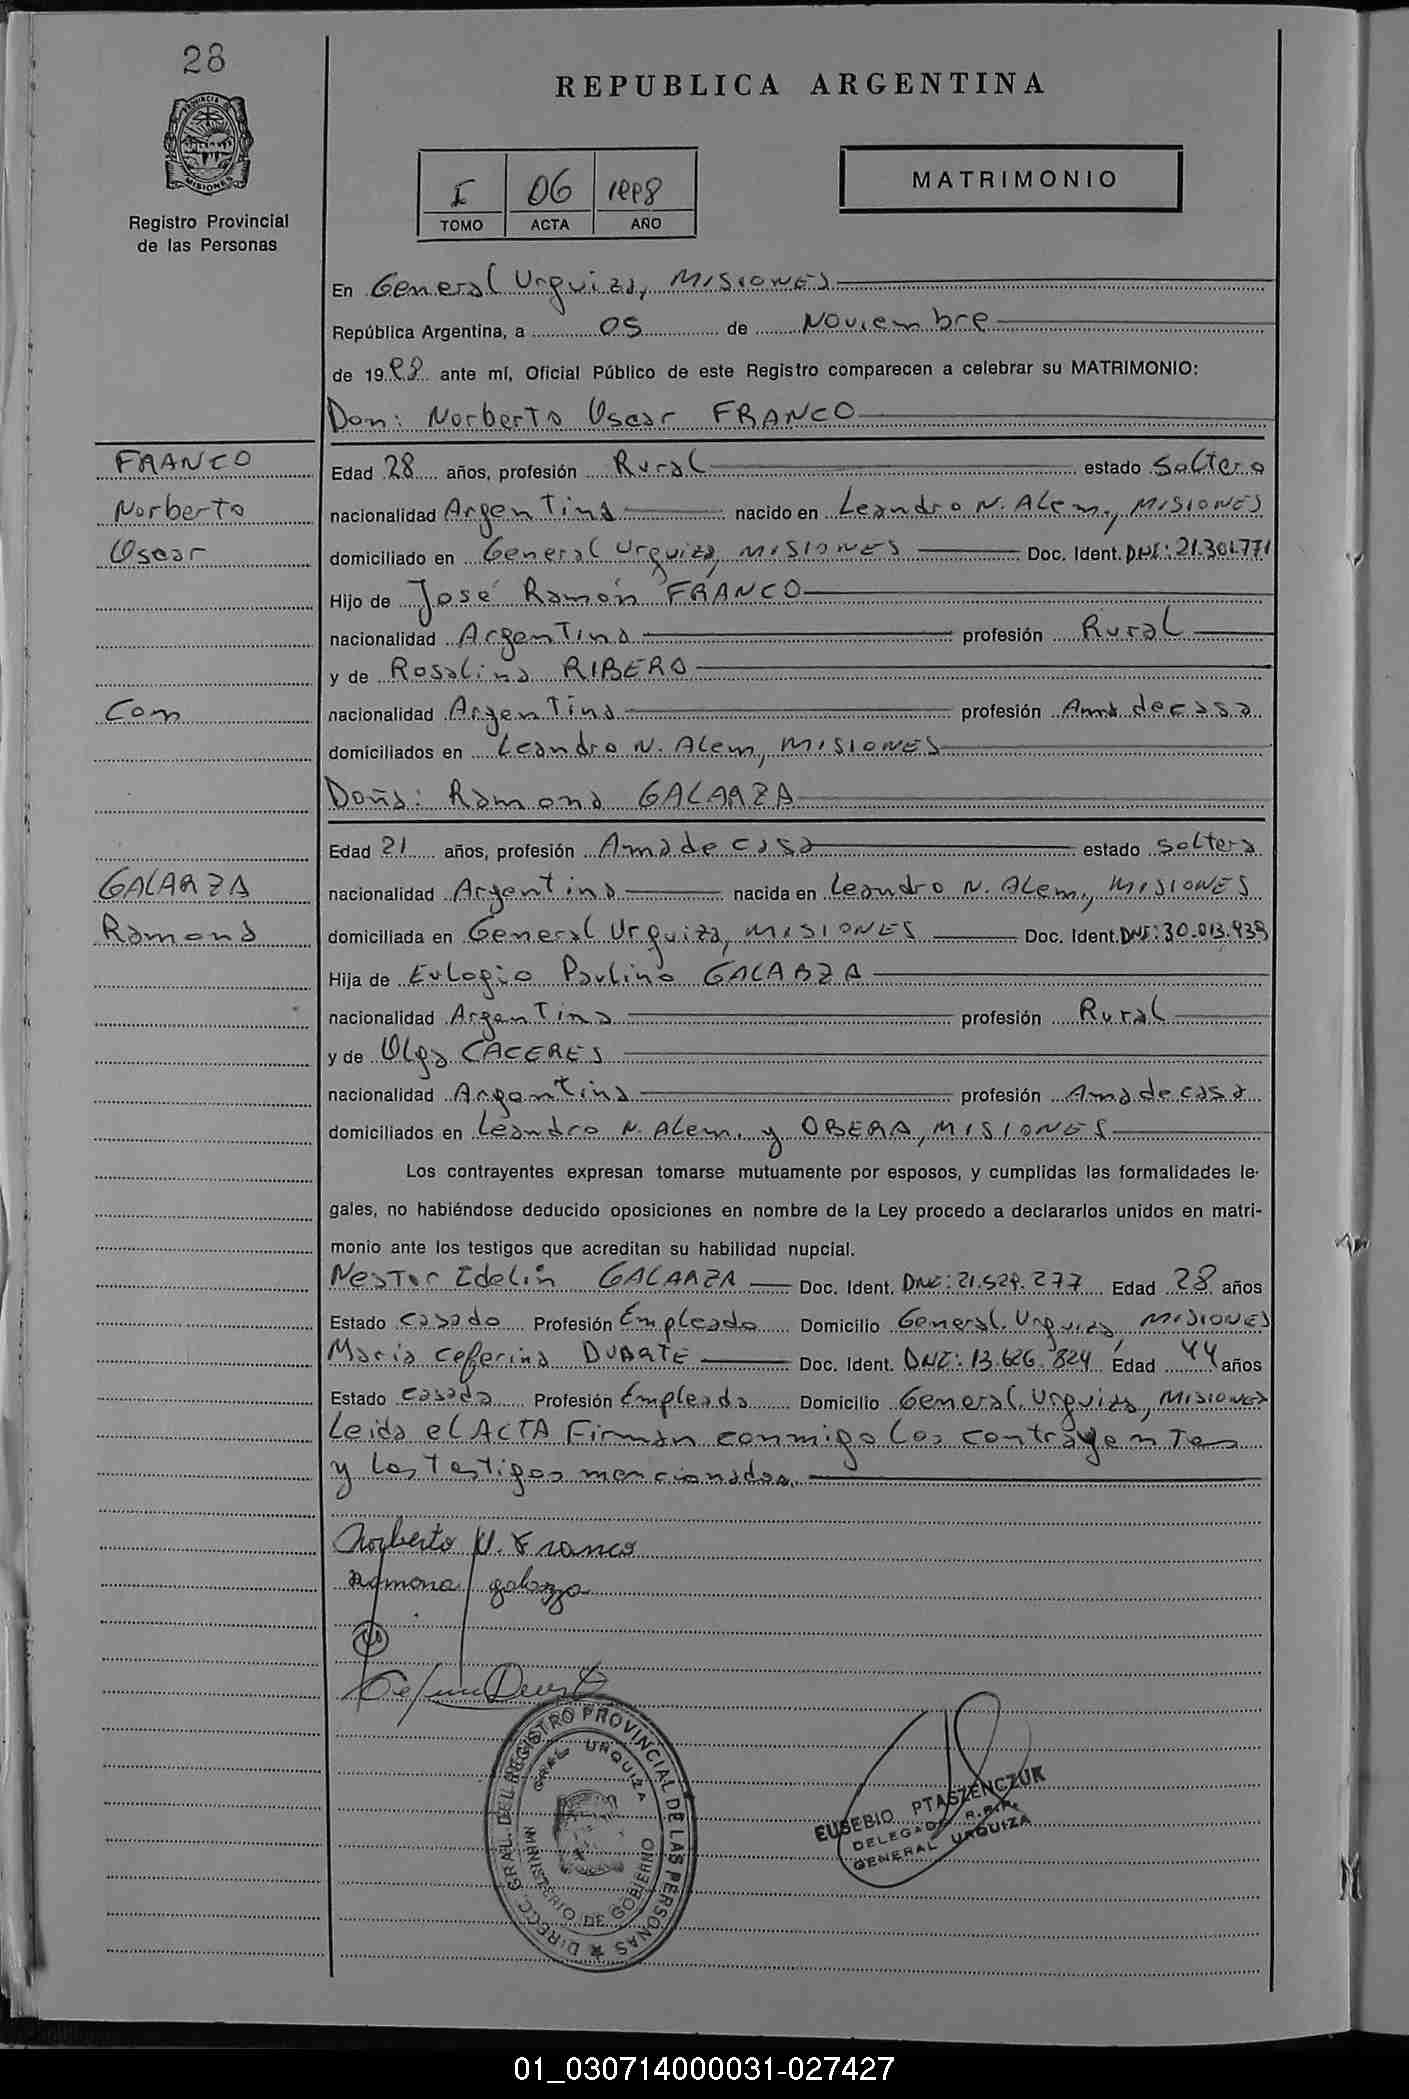 28
PROVINCIA DE
MISIONES
Registro Provincial
de las Personas
REPUBLICA ARGENTINA
I 06 1998
TOMO ACTA AÑO
MATRIMONIO
En General Urquiza, MISIONES
República Argentina, a 05 de Noviembre
de 1998 ante mí, Oficial Público de este Registro comparecen a celebrar su MATRIMONIO:
Don: Norberto Oscar FRANCO
FRANCO
Norberto
Oscar
Con
GALARZA
Ramona
Edad 28 años, profesión Rural estado soltero
nacionalidad Argentina nacido en Leandro N. Alem, MISIONES
domiciliado en General Urquiza, MISIONES Doc. Ident. DNI: 21.301.771
Hijo de José Ramón FRANCO
nacionalidad Argentina profesión Rural
y de Rosalina RIBERO
nacionalidad Argentina profesión Ama de casa
domiciliados en Leandro N. Alem, MISIONES
Doña: Ramona GALARZA
Edad 21 años, profesión Ama de casa estado soltera
nacionalidad Argentina nacida en Leandro N. Alem, MISIONES
domiciliada en General Urquiza, MISIONES Doc. Ident. DNI: 30.013.939
Hija de Eulogio Paulino GALARZA
nacionalidad Argentina profesión Rural
y de Olga CACERES
nacionalidad Argentina profesión Ama de casa
domiciliados en Leandro N. Alem. y OBERA, MISIONES
Los contrayentes expresan tomarse mutuamente por esposos, y cumplidas las formalidades le-
gales, no habiéndose deducido oposiciones en nombre de la Ley procedo a declararlos unidos en matri-
monio ante los testigos que acreditan su habilidad nupcial.
Nestor Edelin GALARZA Doc. Ident. DNI: 21.529.277 Edad 28 años
Estado casado Profesión Empleado Domicilio General Urquiza, MISIONES
Maria Ceferina DUARTE Doc. Ident. DNI: 13.626.824 Edad 44 años
Estado casada Profesión Empleada Domicilio General Urquiza, MISIONES
Leida el ACTA Firman conmigo los contrayentes
y los testigos mencionados.
Norberto O. Franco
Ramona galarza
DIRECC. GRAL. DEL REGISTRO PROVINCIAL DE LAS PERSONAS
GRAL. URQUIZA
MINISTERIO DE GOBIERNO
EUSEBIO PTASZENCZUK
DELEGADO R.P.P.
GENERAL URQUIZA
01_030714000031-027427